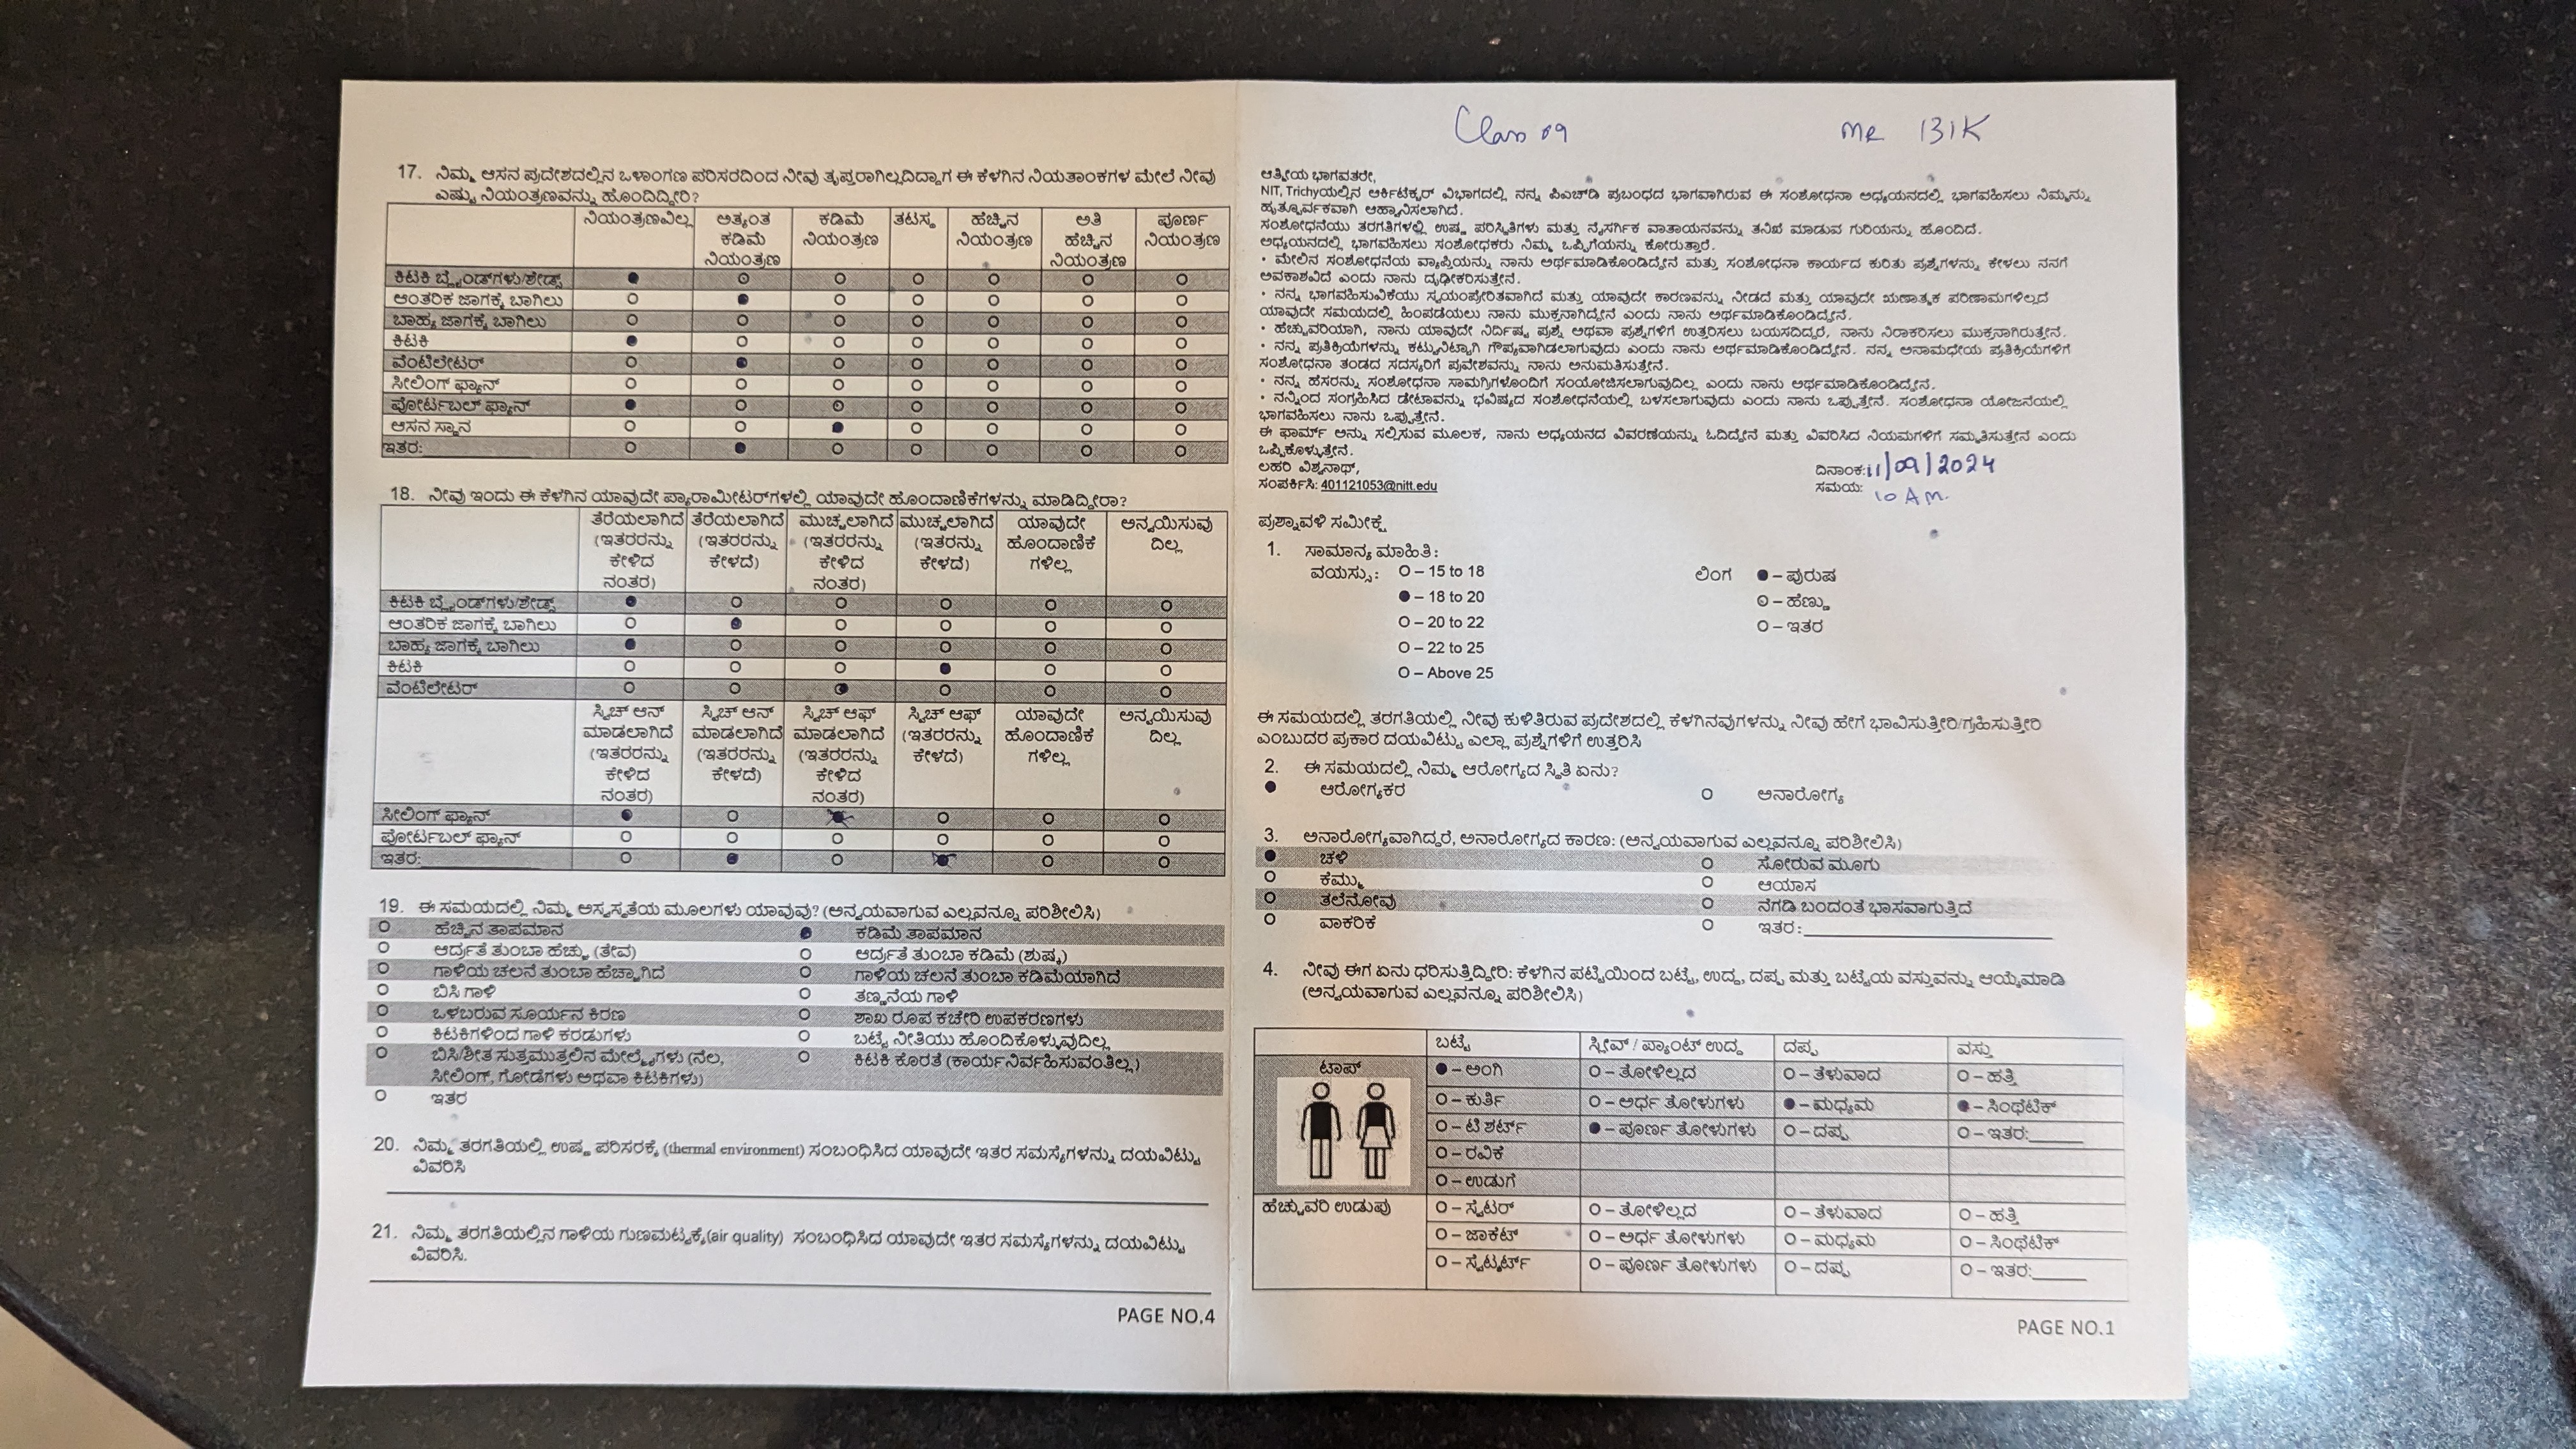 17. ನಿಮ್ಮ ಆಸನ ಪ್ರದೇಶದಲ್ಲಿನ ಒಳಾಂಗಣ ಪರಿಸರದಿಂದ ನೀವು ತೃಪ್ತರಾಗಿಲ್ಲದಿದ್ದಾಗ ಈ ಕೆಳಗಿನ ನಿಯತಾಂಕಗಳ ಮೇಲೆ ನೀವು
ಎಷ್ಟು ನಿಯಂತ್ರಣವನ್ನು ಹೊಂದಿದ್ದೀರಿ?
ನಿಯಂತ್ರಣವಿಲ್ಲ ಅತ್ಯಂತ ಕಡಿಮೆ ನಿಯಂತ್ರಣ ಕಡಿಮೆ ನಿಯಂತ್ರಣ ತಟಸ್ಥ ಹೆಚ್ಚಿನ ನಿಯಂತ್ರಣ ಅತಿ ಹೆಚ್ಚಿನ ನಿಯಂತ್ರಣ ಪೂರ್ಣ ನಿಯಂತ್ರಣ
ಕಿಟಕಿ ಬ್ಲೈಂಡ್‌ಗಳು/ಶೇಡ್ಸ್
ಆಂತರಿಕ ಜಾಗಕ್ಕೆ ಬಾಗಿಲು
ಬಾಹ್ಯ ಜಾಗಕ್ಕೆ ಬಾಗಿಲು
ಕಿಟಕಿ
ವೆಂಟಿಲೇಟರ್
ಸೀಲಿಂಗ್ ಫ್ಯಾನ್
ಪೋರ್ಟಬಲ್ ಫ್ಯಾನ್
ಆಸನ ಸ್ಥಾನ
ಇತರ:
18. ನೀವು ಇಂದು ಈ ಕೆಳಗಿನ ಯಾವುದೇ ಪ್ಯಾರಾಮೀಟರ್‌ಗಳಲ್ಲಿ ಯಾವುದೇ ಹೊಂದಾಣಿಕೆಗಳನ್ನು ಮಾಡಿದ್ದೀರಾ?
ತೆರೆಯಲಾಗಿದೆ (ಇತರರನ್ನು ಕೇಳಿದ ನಂತರ) ತೆರೆಯಲಾಗಿದೆ (ಇತರರನ್ನು ಕೇಳದೆ) ಮುಚ್ಚಲಾಗಿದೆ (ಇತರರನ್ನು ಕೇಳಿದ ನಂತರ) ಮುಚ್ಚಲಾಗಿದೆ (ಇತರನ್ನು ಕೇಳದೆ) ಯಾವುದೇ ಹೊಂದಾಣಿಕೆ ಗಳಿಲ್ಲ ಅನ್ವಯಿಸುವು ದಿಲ್ಲ
ಕಿಟಕಿ ಬ್ಲೈಂಡ್‌ಗಳು/ಶೇಡ್ಸ್
ಆಂತರಿಕ ಜಾಗಕ್ಕೆ ಬಾಗಿಲು
ಬಾಹ್ಯ ಜಾಗಕ್ಕೆ ಬಾಗಿಲು
ಕಿಟಕಿ
ವೆಂಟಿಲೇಟರ್
ಸ್ವಿಚ್ ಆನ್ ಮಾಡಲಾಗಿದೆ (ಇತರರನ್ನು ಕೇಳಿದ ನಂತರ) ಸ್ವಿಚ್ ಆನ್ ಮಾಡಲಾಗಿದೆ (ಇತರರನ್ನು ಕೇಳದೆ) ಸ್ವಿಚ್ ಆಫ್ ಮಾಡಲಾಗಿದೆ (ಇತರರನ್ನು ಕೇಳಿದ ನಂತರ) ಸ್ವಿಚ್ ಆಫ್ (ಇತರರನ್ನು ಕೇಳದೆ) ಯಾವುದೇ ಹೊಂದಾಣಿಕೆ ಗಳಿಲ್ಲ ಅನ್ವಯಿಸುವು ದಿಲ್ಲ
ಸೀಲಿಂಗ್ ಫ್ಯಾನ್
ಪೋರ್ಟಬಲ್ ಫ್ಯಾನ್
ಇತರ:
19. ಈ ಸಮಯದಲ್ಲಿ ನಿಮ್ಮ ಅಸ್ವಸ್ಥತೆಯ ಮೂಲಗಳು ಯಾವುವು? (ಅನ್ವಯವಾಗುವ ಎಲ್ಲವನ್ನೂ ಪರಿಶೀಲಿಸಿ)
ಹೆಚ್ಚಿನ ತಾಪಮಾನ ಕಡಿಮೆ ತಾಪಮಾನ
ಆರ್ದ್ರತೆ ತುಂಬಾ ಹೆಚ್ಚು (ತೇವ) ಆರ್ದ್ರತೆ ತುಂಬಾ ಕಡಿಮೆ (ಶುಷ್ಕ)
ಗಾಳಿಯ ಚಲನೆ ತುಂಬಾ ಹೆಚ್ಚಾಗಿದೆ ಗಾಳಿಯ ಚಲನೆ ತುಂಬಾ ಕಡಿಮೆಯಾಗಿದೆ
ಬಿಸಿ ಗಾಳಿ ತಣ್ಣನೆಯ ಗಾಳಿ
ಒಳಬರುವ ಸೂರ್ಯನ ಕಿರಣ ಶಾಖ ರೂಪ ಕಚೇರಿ ಉಪಕರಣಗಳು
ಕಿಟಕಿಗಳಿಂದ ಗಾಳಿ ಕರಡುಗಳು ಬಟ್ಟೆ ನೀತಿಯು ಹೊಂದಿಕೊಳ್ಳುವುದಿಲ್ಲ
ಬಿಸಿ/ಶೀತ ಸುತ್ತಮುತ್ತಲಿನ ಮೇಲ್ಮೈಗಳು (ನೆಲ, ಕಿಟಕಿ ಕೊರತೆ (ಕಾರ್ಯನಿರ್ವಹಿಸುವಂತಿಲ್ಲ)
ಸೀಲಿಂಗ್, ಗೋಡೆಗಳು ಅಥವಾ ಕಿಟಕಿಗಳು)
ಇತರ
20. ನಿಮ್ಮ ತರಗತಿಯಲ್ಲಿ ಉಷ್ಣ ಪರಿಸರಕ್ಕೆ (thermal environment) ಸಂಬಂಧಿಸಿದ ಯಾವುದೇ ಇತರ ಸಮಸ್ಯೆಗಳನ್ನು ದಯವಿಟ್ಟು
ವಿವರಿಸಿ
21. ನಿಮ್ಮ ತರಗತಿಯಲ್ಲಿನ ಗಾಳಿಯ ಗುಣಮಟ್ಟಕ್ಕೆ(air quality) ಸಂಬಂಧಿಸಿದ ಯಾವುದೇ ಇತರ ಸಮಸ್ಯೆಗಳನ್ನು ದಯವಿಟ್ಟು
ವಿವರಿಸಿ.
PAGE NO.4
Class 09 MR 131K
ಆತ್ಮೀಯ ಭಾಗವತರೇ,
NIT, Trichyಯಲ್ಲಿನ ಆರ್ಕಿಟೆಕ್ಚರ್ ವಿಭಾಗದಲ್ಲಿ ನನ್ನ ಪಿಎಚ್‌ಡಿ ಪ್ರಬಂಧದ ಭಾಗವಾಗಿರುವ ಈ ಸಂಶೋಧನಾ ಅಧ್ಯಯನದಲ್ಲಿ ಭಾಗವಹಿಸಲು ನಿಮ್ಮನ್ನು
ಹೃತ್ಪೂರ್ವಕವಾಗಿ ಆಹ್ವಾನಿಸಲಾಗಿದೆ.
ಸಂಶೋಧನೆಯು ತರಗತಿಗಳಲ್ಲಿ ಉಷ್ಣ ಪರಿಸ್ಥಿತಿಗಳು ಮತ್ತು ನೈಸರ್ಗಿಕ ವಾತಾಯನವನ್ನು ತನಿಖೆ ಮಾಡುವ ಗುರಿಯನ್ನು ಹೊಂದಿದೆ.
ಅಧ್ಯಯನದಲ್ಲಿ ಭಾಗವಹಿಸಲು ಸಂಶೋಧಕರು ನಿಮ್ಮ ಒಪ್ಪಿಗೆಯನ್ನು ಕೋರುತ್ತಾರೆ.
• ಮೇಲಿನ ಸಂಶೋಧನೆಯ ವ್ಯಾಪ್ತಿಯನ್ನು ನಾನು ಅರ್ಥಮಾಡಿಕೊಂಡಿದ್ದೇನೆ ಮತ್ತು ಸಂಶೋಧನಾ ಕಾರ್ಯದ ಕುರಿತು ಪ್ರಶ್ನೆಗಳನ್ನು ಕೇಳಲು ನನಗೆ
ಅವಕಾಶವಿದೆ ಎಂದು ನಾನು ದೃಢೀಕರಿಸುತ್ತೇನೆ.
• ನನ್ನ ಭಾಗವಹಿಸುವಿಕೆಯು ಸ್ವಯಂಪ್ರೇರಿತವಾಗಿದೆ ಮತ್ತು ಯಾವುದೇ ಕಾರಣವನ್ನು ನೀಡದೆ ಮತ್ತು ಯಾವುದೇ ಋಣಾತ್ಮಕ ಪರಿಣಾಮಗಳಿಲ್ಲದೆ
ಯಾವುದೇ ಸಮಯದಲ್ಲಿ ಹಿಂಪಡೆಯಲು ನಾನು ಮುಕ್ತನಾಗಿದ್ದೇನೆ ಎಂದು ನಾನು ಅರ್ಥಮಾಡಿಕೊಂಡಿದ್ದೇನೆ.
• ಹೆಚ್ಚುವರಿಯಾಗಿ, ನಾನು ಯಾವುದೇ ನಿರ್ದಿಷ್ಟ ಪ್ರಶ್ನೆ ಅಥವಾ ಪ್ರಶ್ನೆಗಳಿಗೆ ಉತ್ತರಿಸಲು ಬಯಸದಿದ್ದರೆ, ನಾನು ನಿರಾಕರಿಸಲು ಮುಕ್ತನಾಗಿರುತ್ತೇನೆ.
• ನನ್ನ ಪ್ರತಿಕ್ರಿಯೆಗಳನ್ನು ಕಟ್ಟುನಿಟ್ಟಾಗಿ ಗೌಪ್ಯವಾಗಿಡಲಾಗುವುದು ಎಂದು ನಾನು ಅರ್ಥಮಾಡಿಕೊಂಡಿದ್ದೇನೆ. ನನ್ನ ಅನಾಮಧೇಯ ಪ್ರತಿಕ್ರಿಯೆಗಳಿಗೆ
ಸಂಶೋಧನಾ ತಂಡದ ಸದಸ್ಯರಿಗೆ ಪ್ರವೇಶವನ್ನು ನಾನು ಅನುಮತಿಸುತ್ತೇನೆ.
• ನನ್ನ ಹೆಸರನ್ನು ಸಂಶೋಧನಾ ಸಾಮಗ್ರಿಗಳೊಂದಿಗೆ ಸಂಯೋಜಿಸಲಾಗುವುದಿಲ್ಲ ಎಂದು ನಾನು ಅರ್ಥಮಾಡಿಕೊಂಡಿದ್ದೇನೆ.
• ನನ್ನಿಂದ ಸಂಗ್ರಹಿಸಿದ ಡೇಟಾವನ್ನು ಭವಿಷ್ಯದ ಸಂಶೋಧನೆಯಲ್ಲಿ ಬಳಸಲಾಗುವುದು ಎಂದು ನಾನು ಒಪ್ಪುತ್ತೇನೆ. ಸಂಶೋಧನಾ ಯೋಜನೆಯಲ್ಲಿ
ಭಾಗವಹಿಸಲು ನಾನು ಒಪ್ಪುತ್ತೇನೆ.
ಈ ಫಾರ್ಮ್ ಅನ್ನು ಸಲ್ಲಿಸುವ ಮೂಲಕ, ನಾನು ಅಧ್ಯಯನದ ವಿವರಣೆಯನ್ನು ಓದಿದ್ದೇನೆ ಮತ್ತು ವಿವರಿಸಿದ ನಿಯಮಗಳಿಗೆ ಸಮ್ಮತಿಸುತ್ತೇನೆ ಎಂದು
ಒಪ್ಪಿಕೊಳ್ಳುತ್ತೇನೆ.
ಲಹರಿ ವಿಶ್ವನಾಥ್, ದಿನಾಂಕ: 11/09/2024
ಸಂಪರ್ಕಿಸಿ: 401121053@nitt.edu ಸಮಯ: 10 AM.
ಪ್ರಶ್ನಾವಳಿ ಸಮೀಕ್ಷೆ
1. ಸಾಮಾನ್ಯ ಮಾಹಿತಿ:
ವಯಸ್ಸು: O – 15 to 18 ಲಿಂಗ ● – ಪುರುಷ
● – 18 to 20 O – ಹೆಣ್ಣು
O – 20 to 22 O – ಇತರ
O – 22 to 25
O – Above 25
ಈ ಸಮಯದಲ್ಲಿ ತರಗತಿಯಲ್ಲಿ ನೀವು ಕುಳಿತಿರುವ ಪ್ರದೇಶದಲ್ಲಿ ಕೆಳಗಿನವುಗಳನ್ನು ನೀವು ಹೇಗೆ ಭಾವಿಸುತ್ತೀರಿ/ಗ್ರಹಿಸುತ್ತೀರಿ
ಎಂಬುದರ ಪ್ರಕಾರ ದಯವಿಟ್ಟು ಎಲ್ಲಾ ಪ್ರಶ್ನೆಗಳಿಗೆ ಉತ್ತರಿಸಿ
2. ಈ ಸಮಯದಲ್ಲಿ ನಿಮ್ಮ ಆರೋಗ್ಯದ ಸ್ಥಿತಿ ಏನು?
● ಆರೋಗ್ಯಕರ O ಅನಾರೋಗ್ಯ
3. ಅನಾರೋಗ್ಯವಾಗಿದ್ದರೆ, ಅನಾರೋಗ್ಯದ ಕಾರಣ: (ಅನ್ವಯವಾಗುವ ಎಲ್ಲವನ್ನೂ ಪರಿಶೀಲಿಸಿ)
● ಚಳಿ O ಸೋರುವ ಮೂಗು
O ಕೆಮ್ಮು O ಆಯಾಸ
O ತಲೆನೋವು O ನೆಗಡಿ ಬಂದಂತೆ ಭಾಸವಾಗುತ್ತಿದೆ
O ವಾಕರಿಕೆ O ಇತರ:
4. ನೀವು ಈಗ ಏನು ಧರಿಸುತ್ತಿದ್ದೀರಿ: ಕೆಳಗಿನ ಪಟ್ಟಿಯಿಂದ ಬಟ್ಟೆ, ಉದ್ದ, ದಪ್ಪ ಮತ್ತು ಬಟ್ಟೆಯ ವಸ್ತುವನ್ನು ಆಯ್ಕೆಮಾಡಿ
(ಅನ್ವಯವಾಗುವ ಎಲ್ಲವನ್ನೂ ಪರಿಶೀಲಿಸಿ)
ಬಟ್ಟೆ ಸ್ಲೀವ್ / ಪ್ಯಾಂಟ್ ಉದ್ದ ದಪ್ಪ ವಸ್ತು
ಟಾಪ್ ● – ಅಂಗಿ O – ತೋಳಿಲ್ಲದ O – ತೆಳುವಾದ O – ಹತ್ತಿ
O – ಕುರ್ತಿ O – ಅರ್ಧ ತೋಳುಗಳು ● – ಮಧ್ಯಮ ● – ಸಿಂಥೆಟಿಕ್
O – ಟಿ ಶರ್ಟ್ ● – ಪೂರ್ಣ ತೋಳುಗಳು O – ದಪ್ಪ O – ಇತರ:
O – ರವಿಕೆ
O – ಉಡುಗೆ
ಹೆಚ್ಚುವರಿ ಉಡುಪು O – ಸ್ವೆಟರ್ O – ತೋಳಿಲ್ಲದ O – ತೆಳುವಾದ O – ಹತ್ತಿ
O – ಜಾಕೆಟ್ O – ಅರ್ಧ ತೋಳುಗಳು O – ಮಧ್ಯಮ O – ಸಿಂಥೆಟಿಕ್
O – ಸ್ವೆಟ್ಶರ್ಟ್ O – ಪೂರ್ಣ ತೋಳುಗಳು O – ದಪ್ಪ O – ಇತರ:
PAGE NO.1